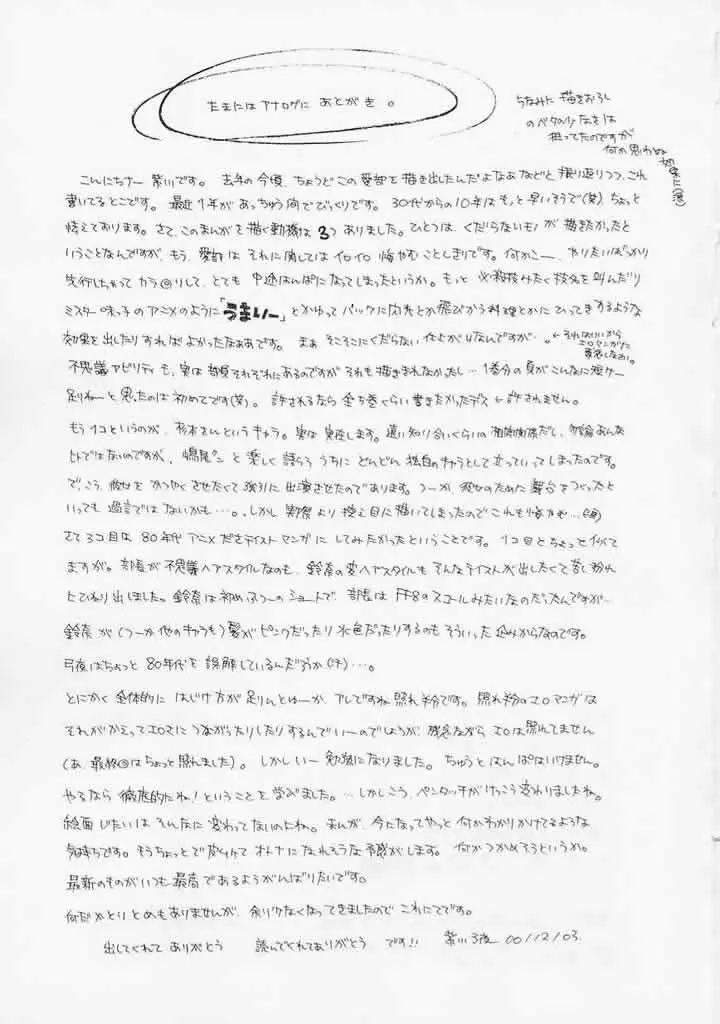 たまにはアナログにあとがき。
ちなみに描きおろし
のペタの少なさは
狙ってたのですが
何か思わぬ
こんにちナー 紫いです。 去年の今頃、ちょうどこの
描き出したんだよなあなどと振り返りつつ、これ
書いてるとこです。 最近1年があっちゅう間でびっくりです。 30代からの10年はもっと早いそうで(笑) ちょっと
怯えております。 さて、このまんがを描く動機は3つありました。ひとつは、くだらないものが描きたかったと
いうことなんですが、もう、それに関してはイロイロ悔やむことしきりです。何かこー、やりたいばっかり
先行しちゃってカラ回りして、とても中途はんぱになってしまったというか。もっと必殺技みたく技名を叫んだり
ミスター味っ子のアニメのように「うまいー」とかゆってバックに閃光とか飛びかう料理とかにひってきするような
効果を出したりすればよかったなぁあです。 まあそこそこにくだらない仕上がりなんですが…。←それはいいから
エロマンガだ
不思議アビリティも、実は部員それぞれにあるのですがそれも描ききれなかったし… 1巻分の頁がこんなに短けー
足りねーと思ったのは初めてです(笑)。 許されるなら全5巻くらい書きたかったデス←許されません。
もう1コというのが、杉本さんというキャラ。実は実在します。遠い知り合いくらいの
勿論あんな
ヒトではないのですが、 と楽しく語らううちにどんどん独自のキャラとして立っていってしまったのです。
で、こう、彼女をかつやくさせたくて強引に出演させたのであります。つーか、彼女のために舞台をつくったと
いっても過言ではないかも…。しかし実際より控え目に描いてしまったのでこれも
さて3コ目は80年代アニメだきテイストマンガにしてみたかったということです。 1コ目とちょっと似て
ますが。部長が不思議ヘアスタイルなのも、鈴奈の変ヘアスタイルもそんなテイストが出したくて苦し紛れ
にひねり出しました。鈴奈は初めふつーのショートで、部長はFF8のスコールみたいなのだったんですが…
鈴奈が(つーか他のキャラも)髪がピンクだったり水色だったりするのもそういった企みからなのです。
弓夜はちょっと80年代を誤解しているんだろうか(汗)…。
とにかく全体的にはじけ方が足りんとゆーか、アレですね照れ半分です。照れ半分のエロマンガは
それがかえってエロさにつながったりしたりするんでいーのでしょうが、残念ながらエロは照れてません
(あ、最終回はちょっと照れました)。 しかしいー勉強になりました。ちゅうとはんぱはいけません。
やるなら徹底的にね！ということを学びました。…しかしこう、ペンタッチがけっこう変わりましたね。
絵面じたいはそんなに変わってないのよね。まんが、今になってやっと何かわかりかけてるような
気持ちです。もうちょっとで
オトナになれそうな予感がします。 何かつかめそうというか。
最新のものがいつも最高であるようがんばりたいです。
何だかとりとめもありませんが、余白なくなってきましたのでこれにてです。
出してくれてありがとう 読んでくれてありがとう です!! 紫い弓夜 00/12/03.